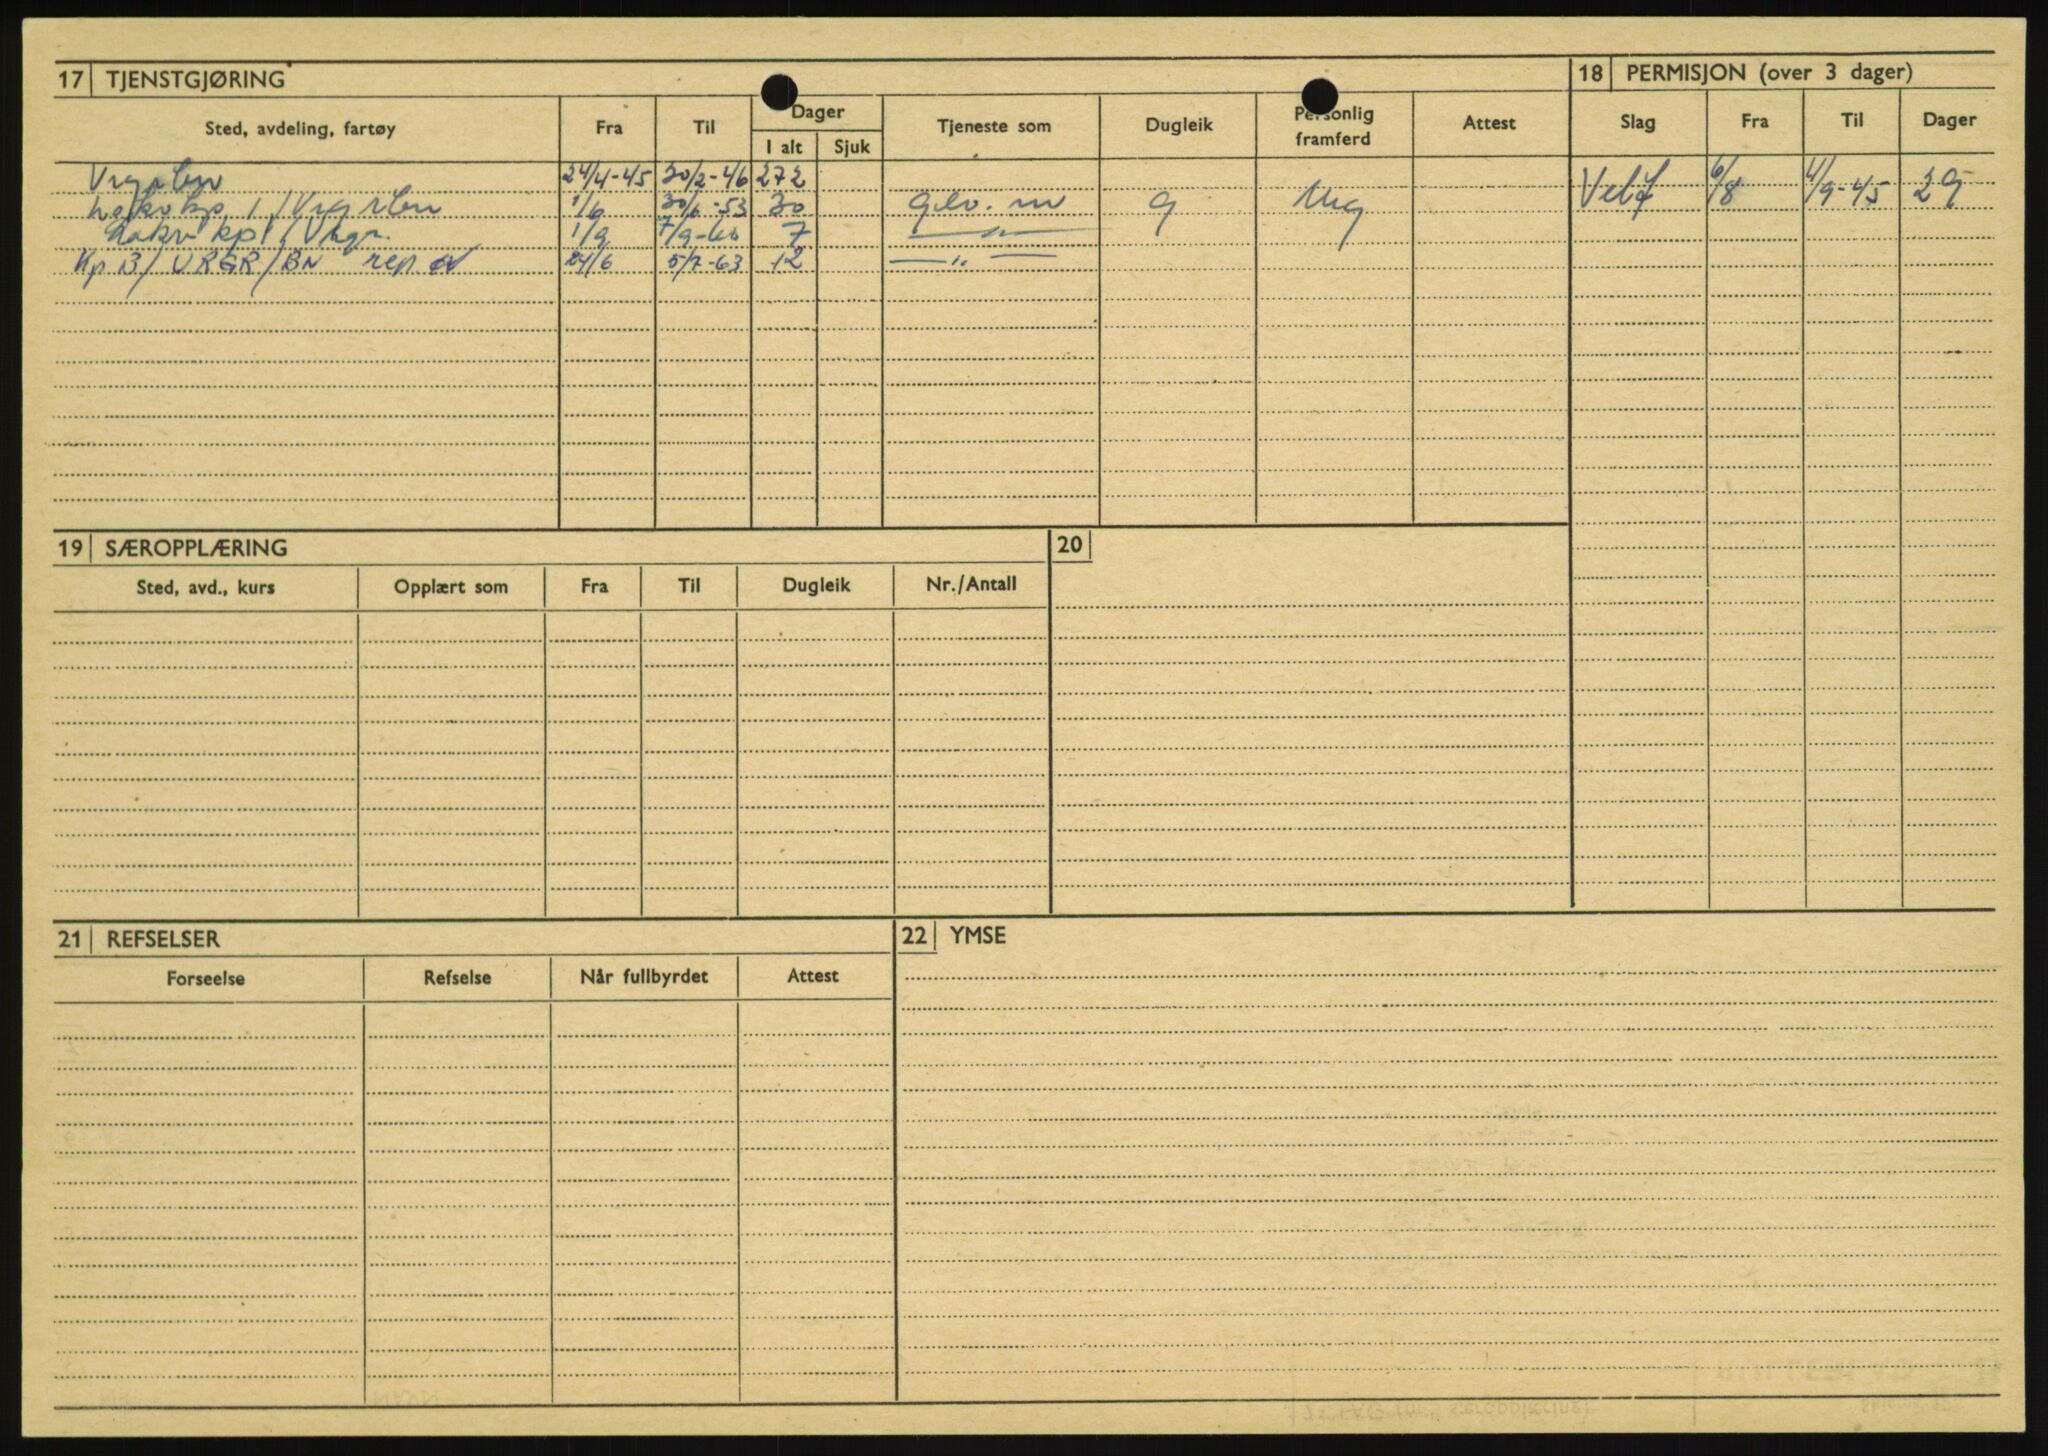 17 TJENSTGJØRING
18 PERMISJON (over 3 dager)
Sted, avdeling, fartøy Fra Til Dager I alt Sjuk Tjeneste som Dugleik Personlig framferd Attest
Slag Fra Til Dager
24/4-45 30/2-46 272
kp. 1 / 1/6 30/6-53 30 gev. m g Mg
Velf 6/8 4/9-45 29
kp 1 / 1/9 7/9-60 7 — " —
Kp B/ URGR/BN rep øv 24/6 5/7-63 12 — " —
19 SÆROPPLÆRING
20
Sted, avd., kurs Opplært som Fra Til Dugleik Nr./Antall
21 REFSELSER
22 YMSE
Forseelse Refselse Når fullbyrdet Attest